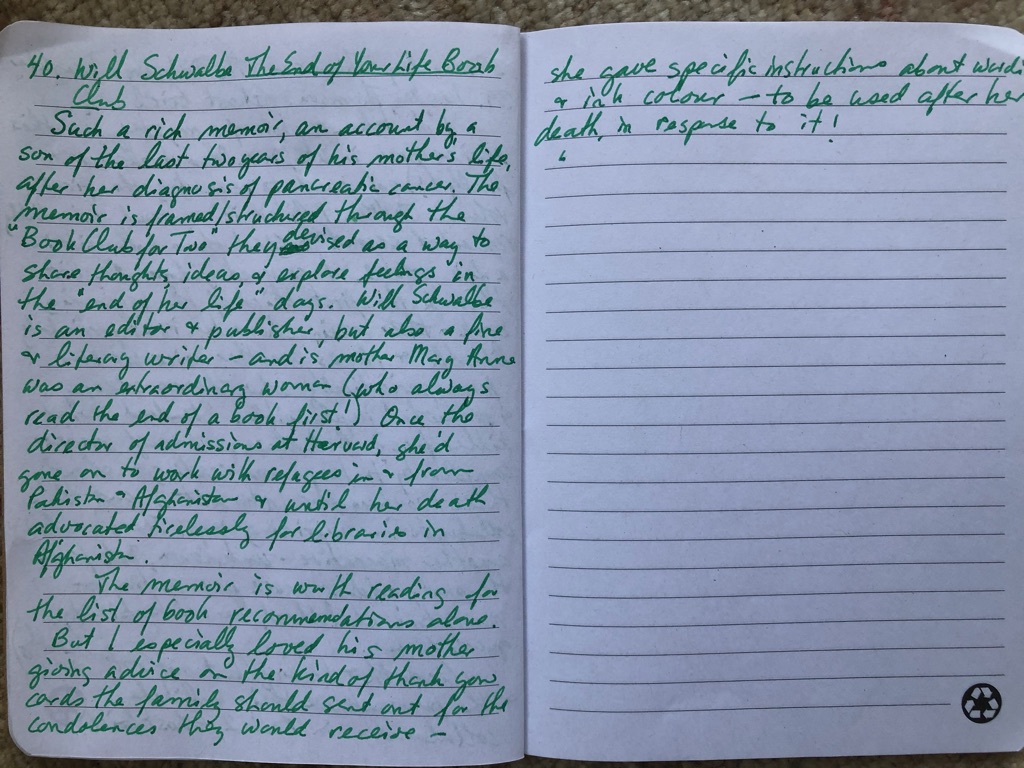 40. Will Schwalbe The End of Your Life Book
Club
Such a rich memoir, an account by a
son of the last two years of his mother's life,
after her diagnosis of pancreatic cancer. The
memoir is framed/structured through the
"Book Club for Two" they devised as a way to
share thoughts, ideas, & explore feelings in
the "end of her life" days. Will Schwalbe
is an editor & publisher, but also a fine
& literary writer – and is mother Mary Anne
was an extraordinary woman (who always
read the end of a book first!) Once the
director of admissions at Harvard, she'd
gone on to work with refugees in & from
Pakistan & Afghanistan & until her death
advocated tirelessly for libraries in
Afghanistan.
The memoir is worth reading for
the list of book recommendations alone.
But I especially loved his mother
giving advice on the kind of thank you
cards the family should sent out for the
condolences they would receive –
she gave specific instructions about wordi
& ink colour – to be used after her
death, in response to it!